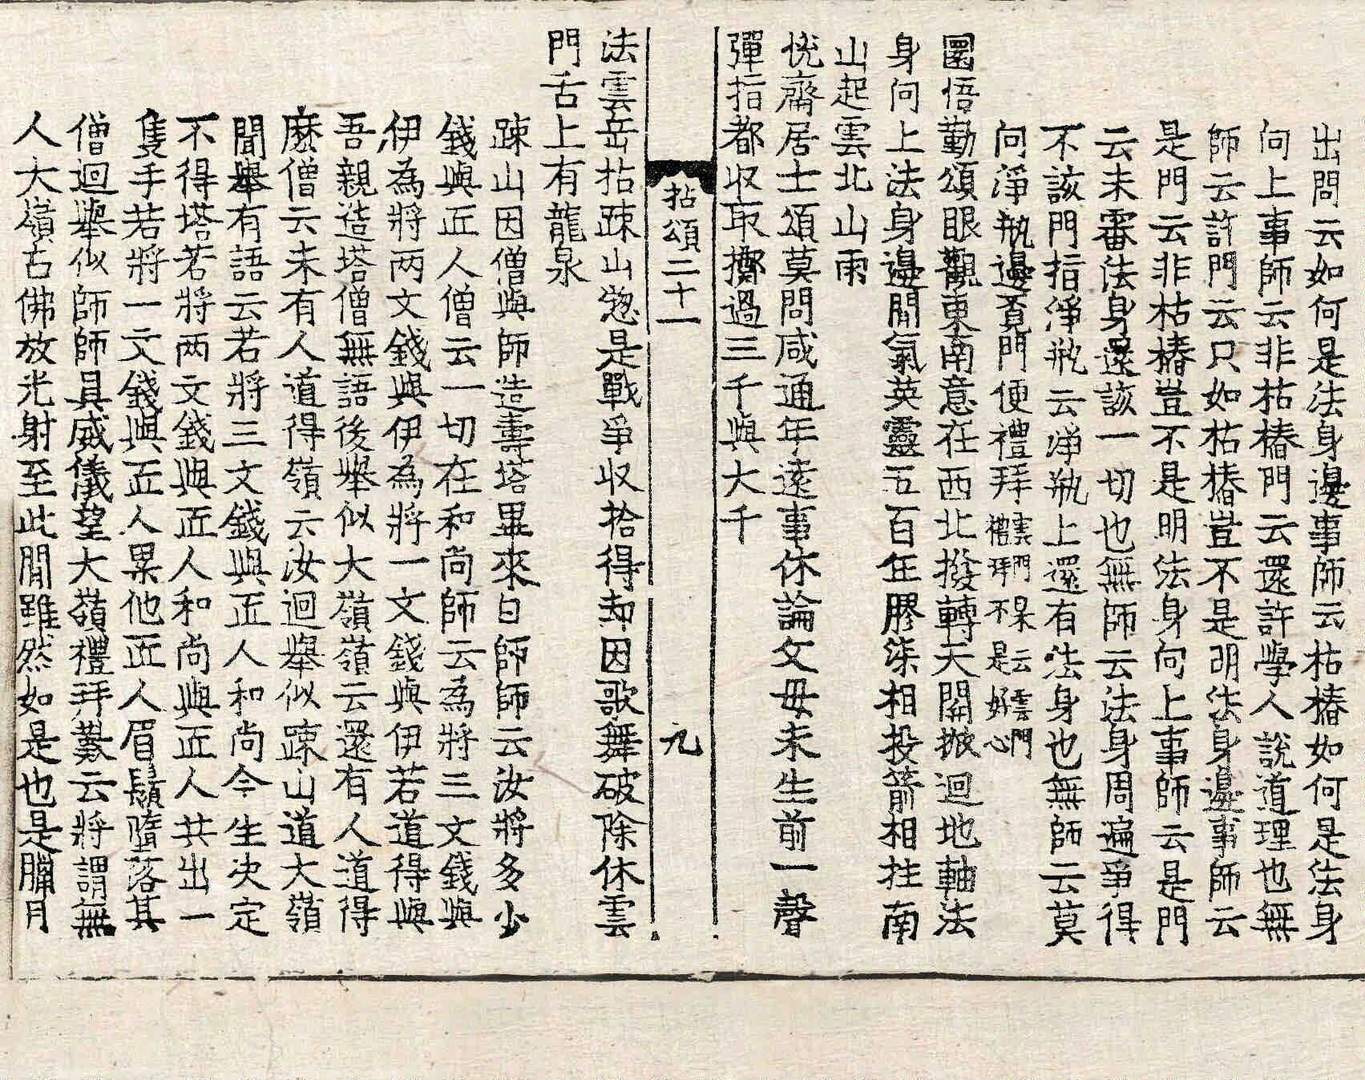 出問云如何是法身邊事師云枯樁如何是法身
向上事師云非枯樁門云還許學人說道理也無
師云許門云只如枯樁豈不是明法身邊事師云
是門云非枯樁豈不是明法身向上事師云是門
云未審法身還該一切也無師云法身周遍爭得
不該門指淨瓶云淨瓶上還有法身也無師云莫
向淨瓶邊覓門便禮拜雲門杲云雲門禮拜不是好心
圜悟勤頌眼觀東南意在西北撥轉天關掀迴地軸法
身向上法身邊間氣英靈五百年膠柒相投箭相拄南
山起雲北山雨
恱齋居士頌莫問咸通年遠事休論父毋未生前一聲
彈指都収取擲過三千與大千
拈頌二十一 九
法雲岳拈踈山惣是戰爭収拾得却因歌舞破除休雲
門舌上有龍泉
踈山因僧與師造壽塔畢來白師師云汝將多少
錢與匠人僧云一切在和尚師云為將三文錢與
伊為將两文錢與伊為將一文錢與伊若道得與
吾親造塔僧無語後舉似大嶺嶺云還有人道得
麽僧云未有人道得嶺云汝迴舉似踈山道大嶺
聞舉有語云若將三文錢與匠人和尚今生决定
不得塔若將两文錢與匠人和尚與匠人共出一
隻手若將一文錢與匠人累他匠人眉鬚墮落其
僧迴舉似師師具威儀望大嶺禮拜歎云將謂無
人大嶺古佛放光射至此間雖然如是也是臘月